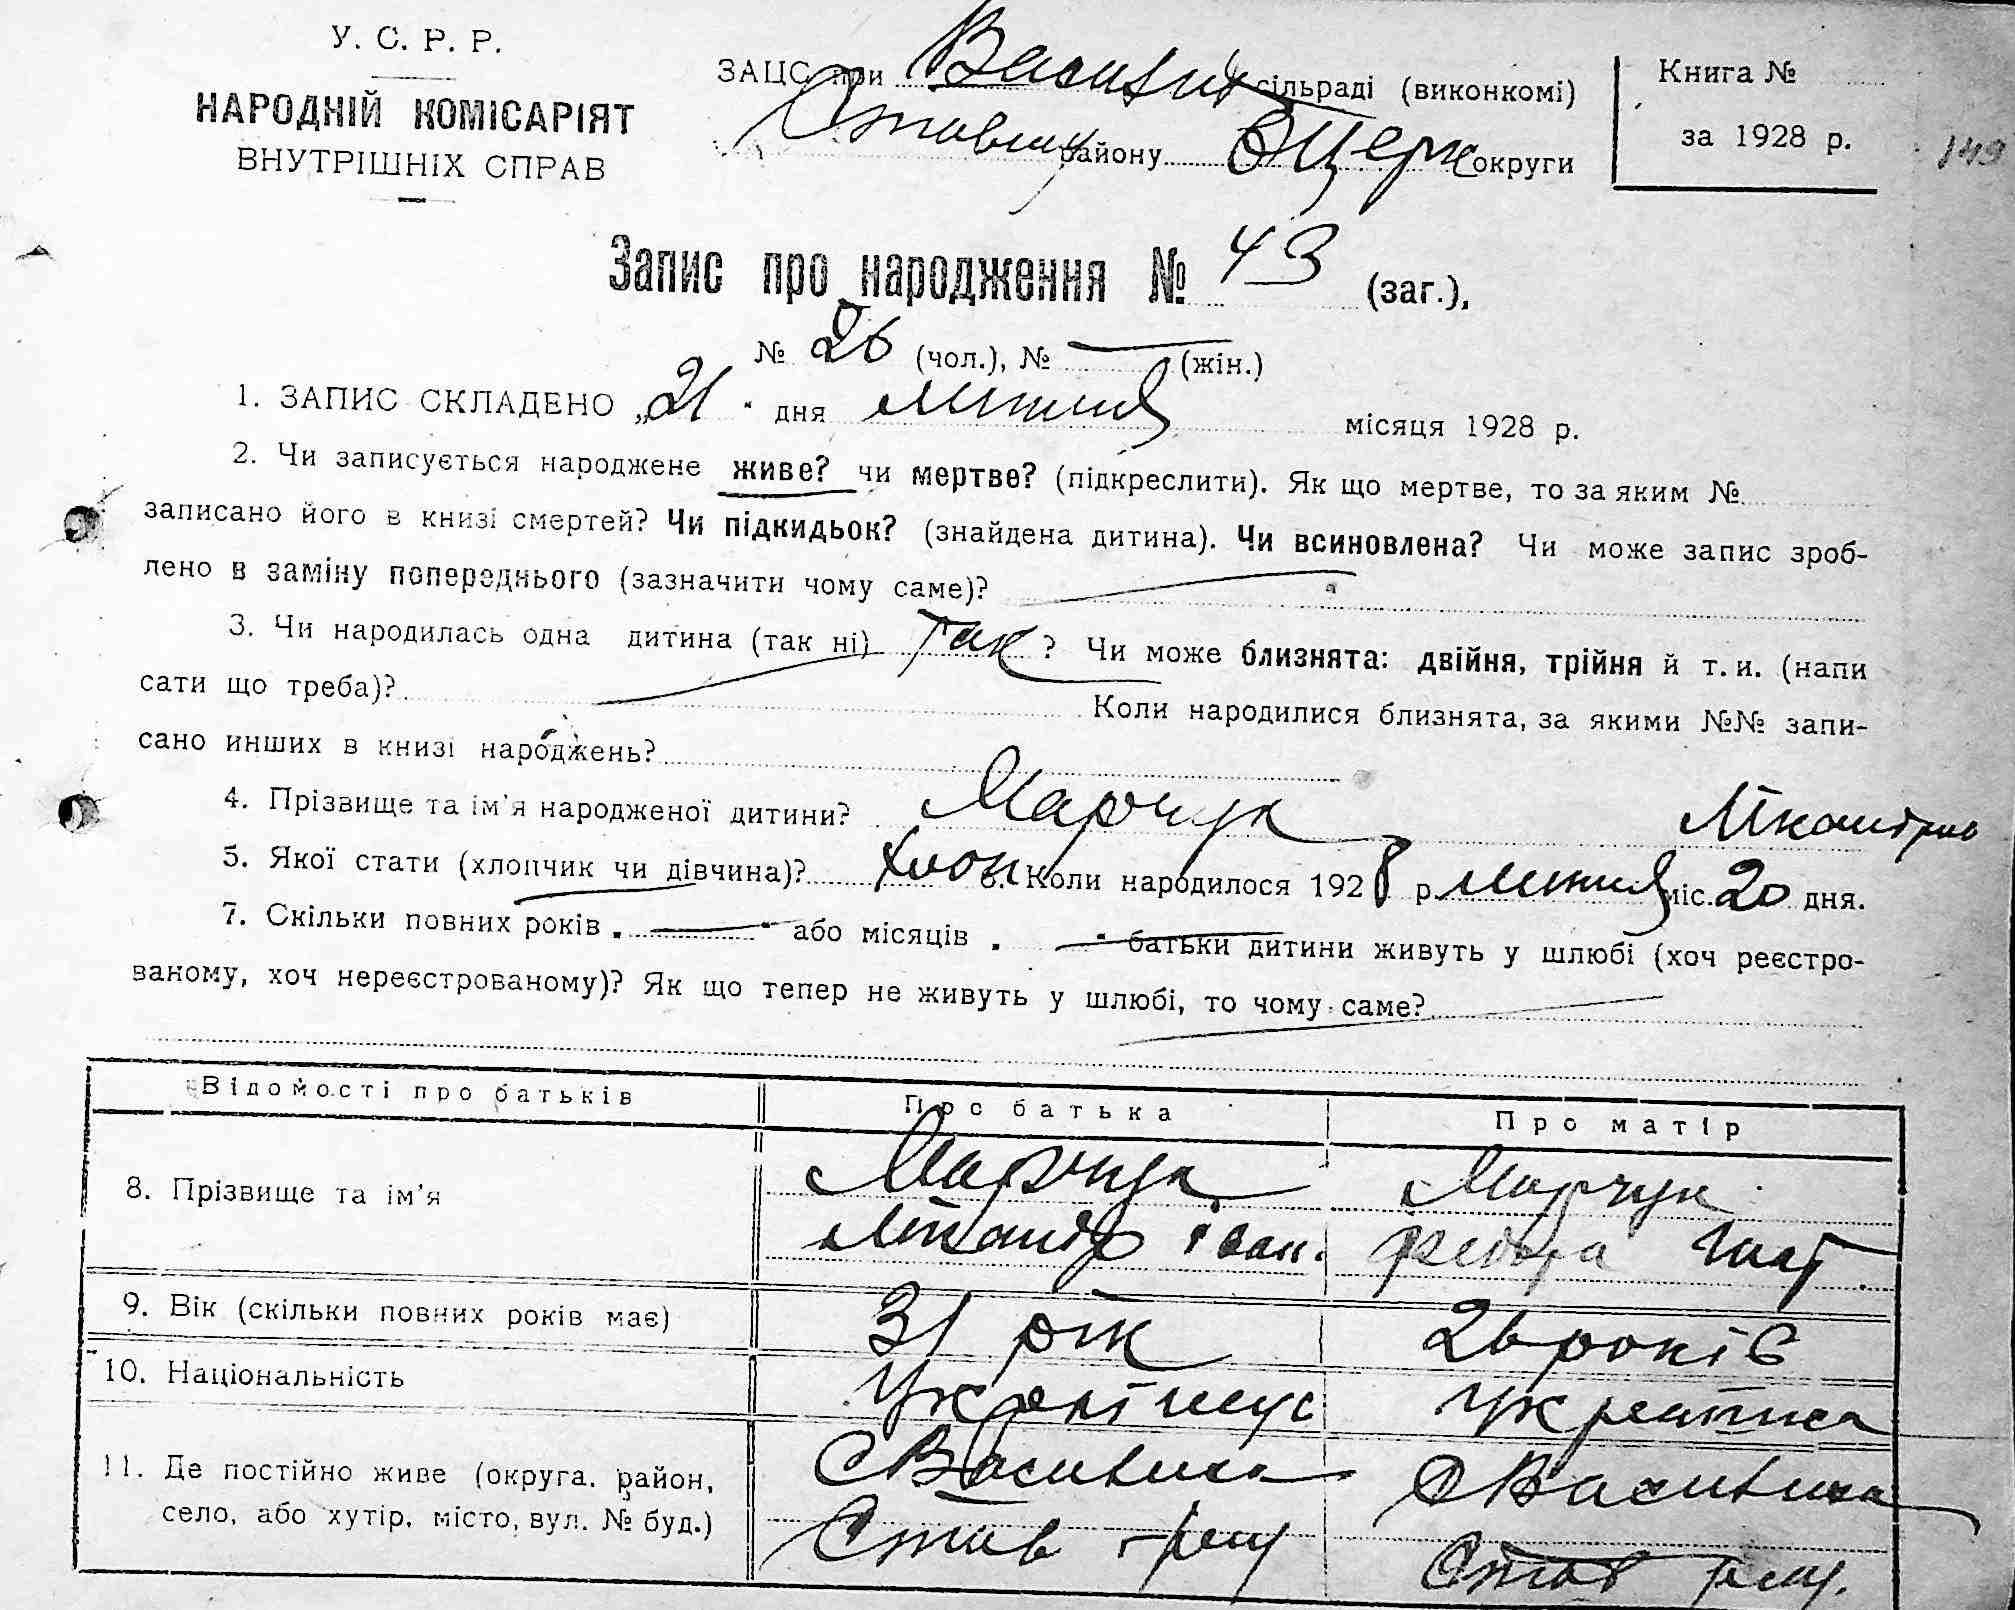 У. С. Р. Р.
НАРОДНІЙ КОМІСАРІЯТ
ВНУТРІШНІХ СПРАВ
ЗАЦС при Василів сільраді (виконкомі)
Ставищ району БЦерк округи
Книга №
за 1928 р.
149
Запис про народження № 43 (заг.),
№ 26 (чол.), № — (жін.)
1. ЗАПИС СКЛАДЕНО „21" дня липня місяця 1928 р.
2. Чи записується народжене живе? чи мертве? (підкреслити). Як що мертве, то за яким №
записано його в книзі смертей? Чи підкидьок? (знайдена дитина). Чи всиновлена? Чи може запис зроб-
лено в заміну попереднього (зазначити чому саме)?
3. Чи народилась одна дитина (так ні) так ? Чи може близнята: двійня, трійня й т. и. (напи
сати що треба)? Коли народилися близнята, за якими №№ запи-
сано инших в книзі народжень?
4. Прізвище та ім'я народженої дитини? Марчук
5. Якої стати (хлопчик чи дівчина)? хлоп 6. Коли народилося 1928 р. липня міс. 20 дня.
7. Скільки повних років „ — " або місяців „ — " батьки дитини живуть у шлюбі (хоч реєстро-
ваному, хоч нереєстрованому)? Як що тепер не живуть у шлюбі, то чому саме?
Відомості про батьків Про батька Про матір
8. Прізвище та ім'я Марчук Марчук
Іван.
9. Вік (скільки повних років має) 31 рік 26 років
10. Національність Українець Українка
11. Де постійно живе (округа, район, с Василиха с Василиха
село, або хутір, місто, вул. № буд.) Став р-ну Став р-ну.